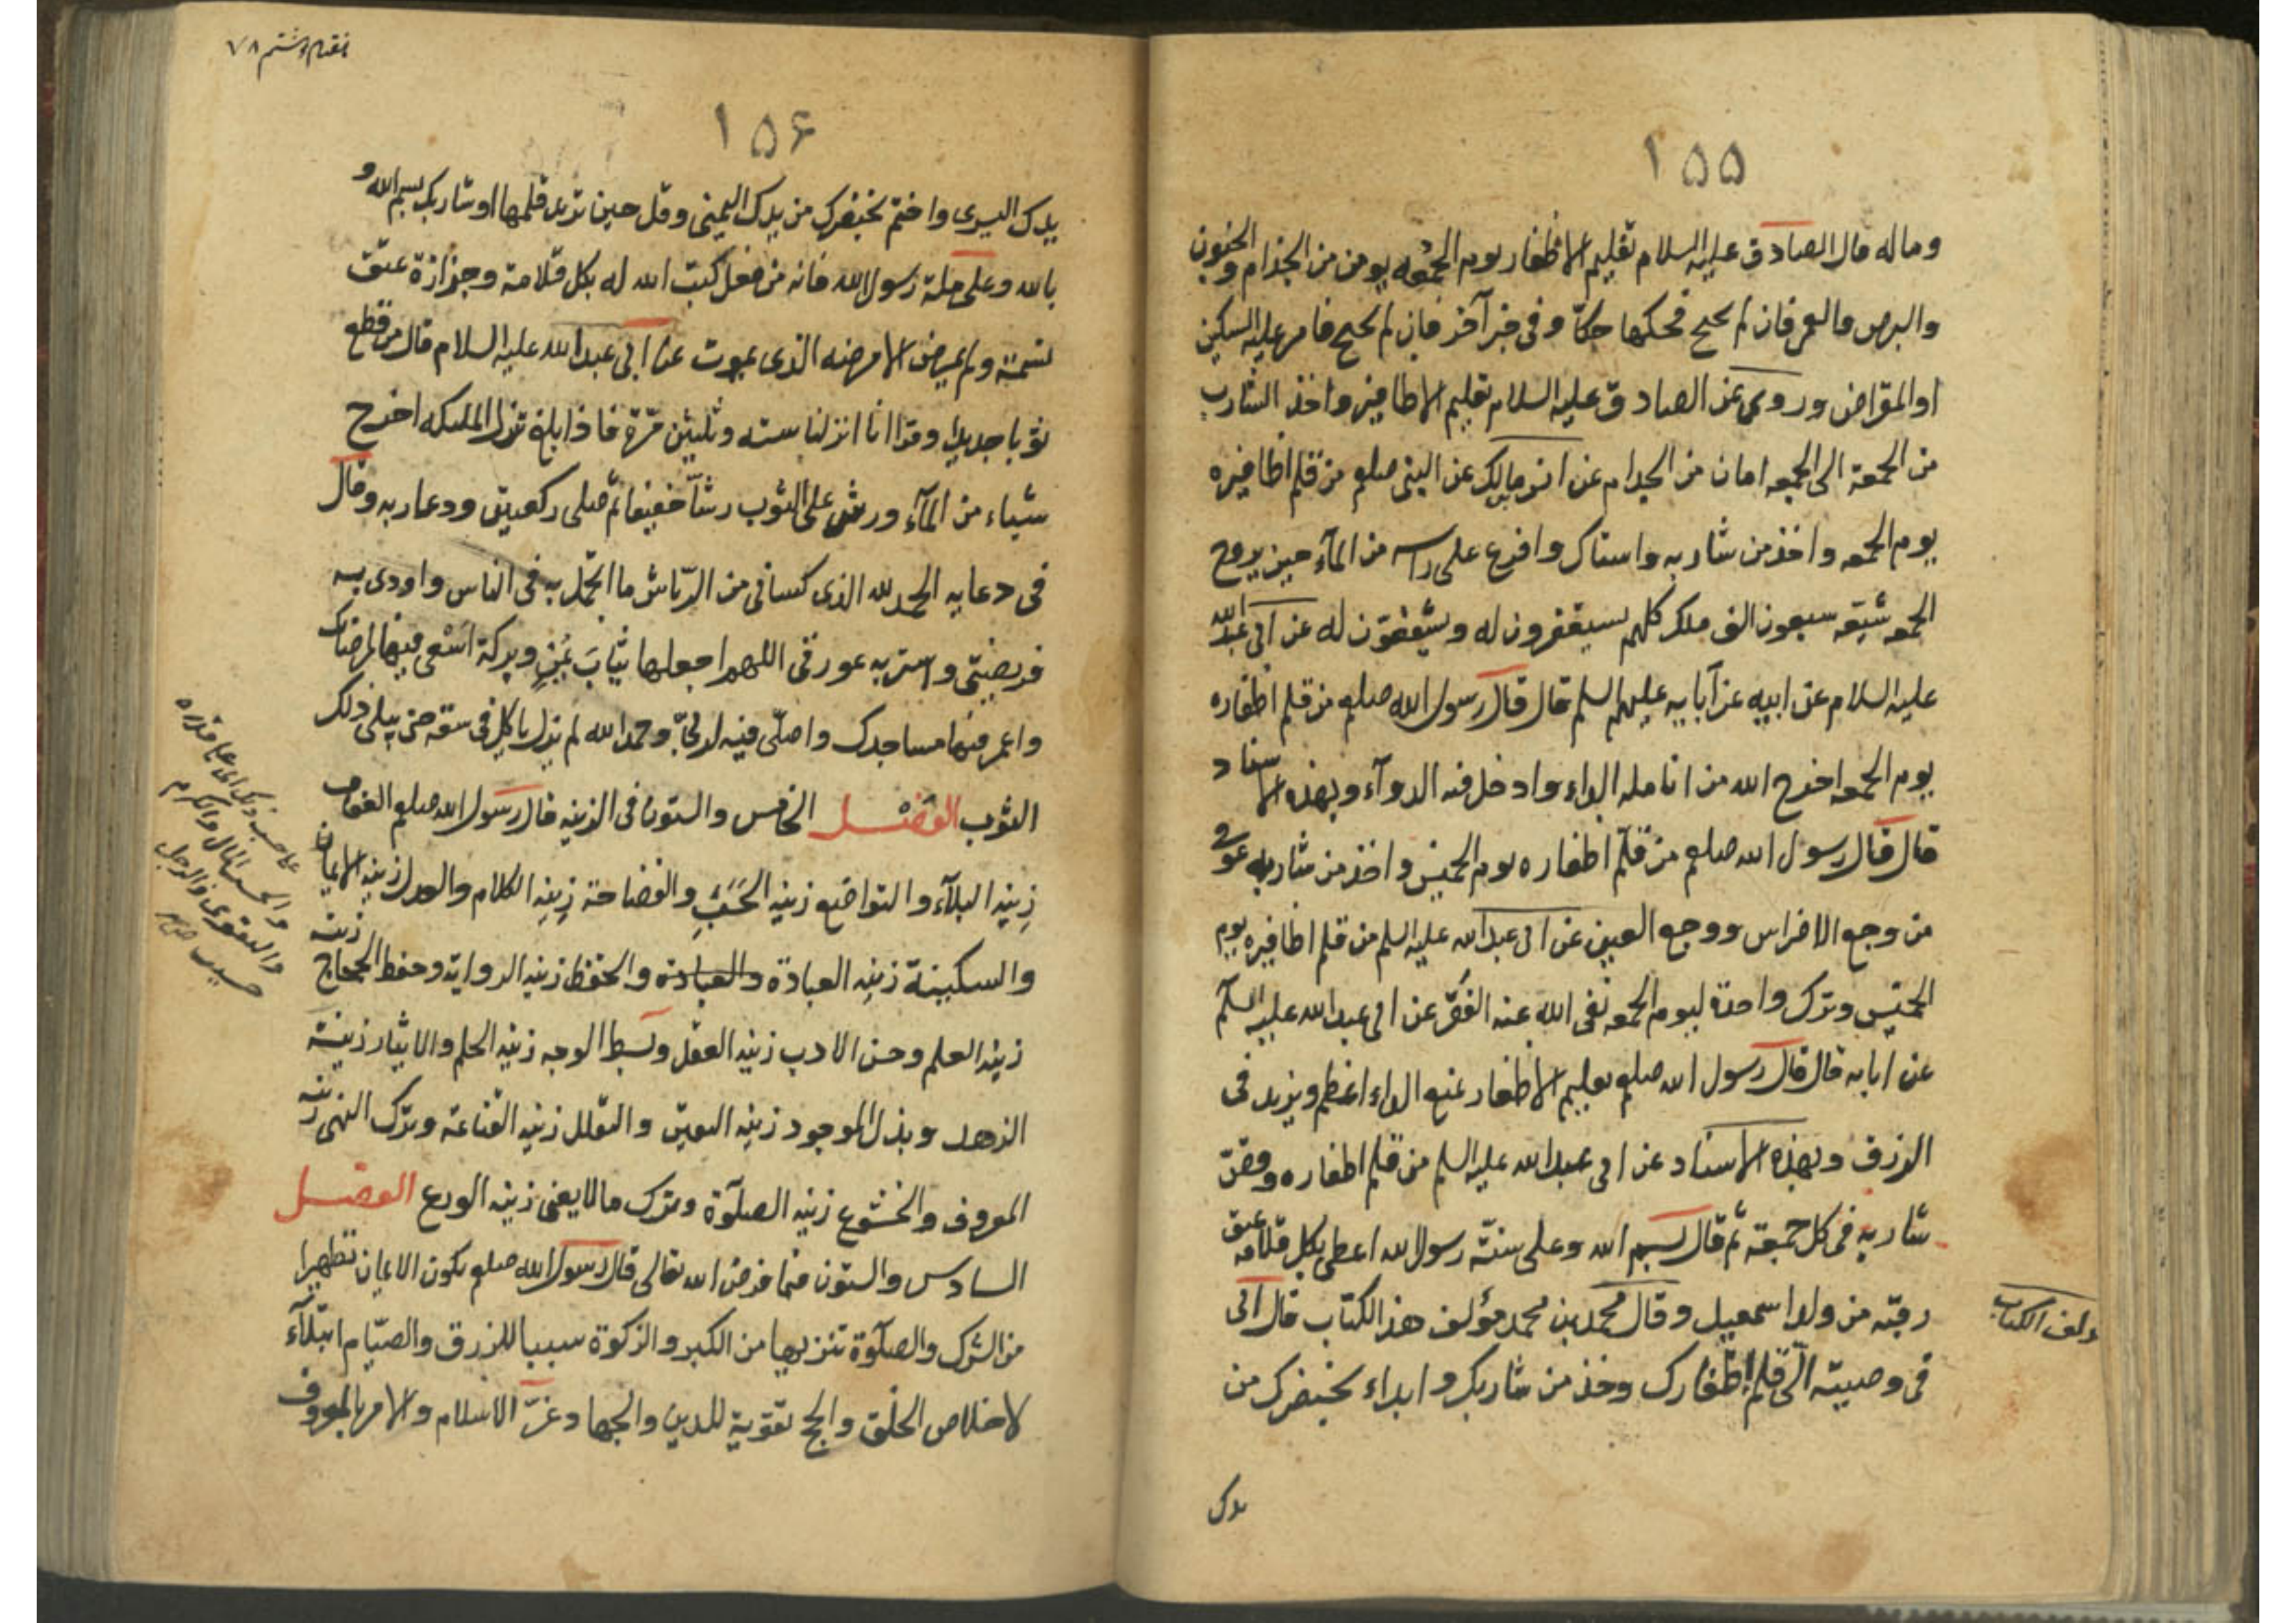 ١٥٥
وماله قال الصادق عليه السلام تقليم الاظفار يوم الجمعه يومن من الجذام والجنون
والبرص والعمى فان لم تحتج فحكها حكّا وفى خبر آخر فان لم تحتج فامر عليه السكين
او المقراض وروى عن الصادق عليه السلام تقليم الاظافير واخذ الشارب
من الجمعة الى الجمعه امان من الجذام عن انس بن مالك عن النبى صلعم من قلم اظافيره
يوم الجمعه واخذ من شاربه واستاك وافرغ على راسه من المآء حين يروح
الجمعه شيّعه سبعون الف ملك كلهم يستغفرون له ويشفعون له عن ابى عبد الله
عليه السلام عن ابيه عن آبايه عليهم السلم قال قال رسول الله صلعم من قلم اظفاره
يوم الجمعه اخرج الله من انامله الداء وادخل فيه الدوآء وبهذه الاسناد
قال قال رسول الله صلعم من قلّم اظفاره يوم الخميس واخذ من شاربه عوفى
من وجع الاضراس ووجع العين عن ابى عبد الله عليه السلم من قلم اظافيره يوم
الخميس وترك واحدة ليوم الجمعه نفى الله عنه الفقر عن ابى عبد الله عليه السلم
عن ابايه قال قال رسول الله صلعم تقليم الاظفار يمنع الداء الاعظم ويزيد فى
الرزق وبهذه الاسناد عن ابى عبد الله عليه السلم من قلم اظفاره وقصّ
شاربه فى كل جمعة ثم قال بسم الله وعلى سنّة رسول الله اعطى بكل قلامة عتق
رقبة من ولد اسمعيل وقال محمد بن محمد مؤلف هذا الكتاب قال ابى
فى وصيته الىّ قلم اظفارك وخذ من شاربك وابداء بخنصرك من
مولف الكتاب
يدك
٧٨
١٥٦
يدك اليسرى واختم بخنصرك من يدك اليمنى وقل حين تريد قلمها او شاربك بسم الله و
بالله وعلى ملة رسول الله فانه من فعل كتب الله له بكل قلامة وجزازة عتق
نسمة ولم يمرض الا مرضه الذى يموت عن ابى عبد الله عليه السلام قال من قطع
ثوبا جديدا وقرا انا انزلناه ستة وثلثين مرّة فاذا بلغ تنزل الملئكه اخرج
شياء من المآء ورش على الثوب رشّا خفيفا ثم صلى ركعتين ودعا ربه وقال
فى دعايه الحمد لله الذى كسانى من الرّياش ما اتجمّل به فى الناس واودى به
فريضتى واستر به عورتى اللهم اجعلها ثياب يُمنٍ وبركة اسْعى فيها لمرضاتك
واعمر فيها مساجدك واصلّى فيه لربى وحمد الله لم يزل ياكل فى سعة حتى يبلى ذلك
الثوب الفصل الخامس والستون فى الزينه قال رسول الله صلعم العفاف
زينه البلآء والتواضع زينه الحَسَبِ والفصاحة زينه الكلام والعدل زينه الايمان
والسكينة زينه العبادة والعبادة والحفظ زينه الرواية وحفظ الحجاج زينه
زينه العلم وحسن الادب زينه العقل وبسط الوجه زينه الحلم والايثار زينة
الزهد وبذل الموجود زينه اليقين والتقلل زينه القناعة وترك المن زينه
المعروف والخشوع زينه الصلوة وترك مالا يعنى زينه الورع الفصل
السادس والستون فيما فرض الله تعالى قال رسول الله صلعم يكون الايمان تطهيرا
من الشرك والصلوة تنزيها من الكبر والزكوة سببا للرزق والصيام ابتلآء
لاخلاص الخلق والحج تقوية للدين والجهاد عزّ الاسلام والامر بالمعروف